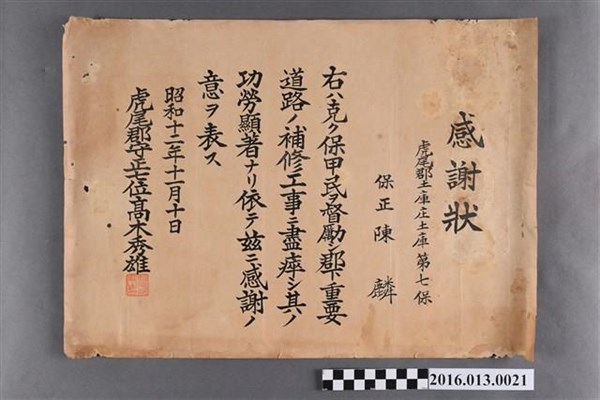 感謝狀
虎尾郡土庫庄土庫第七保
保正陳麟
右ハ克ク保甲民ヲ督勵シ郡下重要
道路ノ補修工事ニ盡瘁シ其ノ
功勞顯著ナリ依テ茲ニ感謝ノ
意ヲ表ス
昭和十二年十一月十日
虎尾郡守正七位髙木秀雄
2016.013.0021